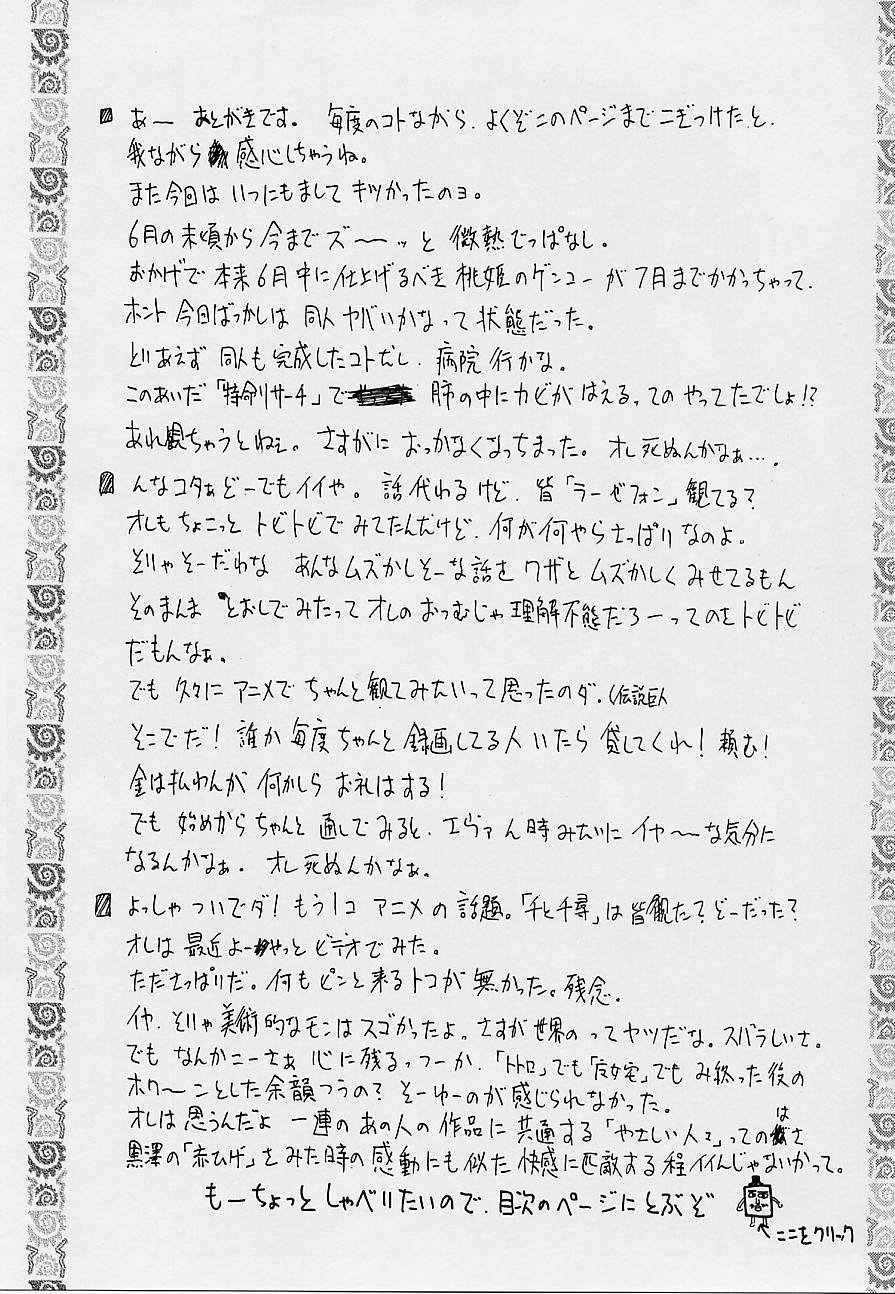 あー あとがきです。 毎度のコトながら、よくぞこのページまでこぎつけたと、
我ながら感心しちゃうね。
また今回は いつにもまして キツかったのョ。
6月の末頃から 今まで ズ〜〜ッと 微熱でっぱなし。
おかげで 本来6月中に仕上げるべき 桃姫のゲンコーが 7月までかかっちゃって、
ホント 今回ばっかしは 同人 ヤバいかなって 状態だった。
とりあえず 同人も完成したコトだし、病院 行かな。
このあいだ「特命リサーチ」で 肺の中にカビがはえるってのやってたでしょ!?
あれ観ちゃうとねぇ。 さすがに おっかなくなっちまった。 オレ死ぬんかなぁ…。
んなコタぁ どーでもイイや。 話代わるけど、皆「ラーゼフォン」観てる?
オレもちょこっと トビトビで みてたんだけど、何が何やらさっぱりなのよ。
そりゃそーだわな あんなムズかしそーな話を ワザと ムズかしく みせてるもん
そのまんま とおしでみたって オレのおつむじゃ 理解不態だろーってのを トビトビ
だもんなぁ。
でも 久々に アニメで ちゃんと観てみたいって思ったのダ。 伝説巨人
そこでだ! 誰か 毎度ちゃんと 録画してる人 いたら 貸してくれ! 頼む!
金は払わんが 何かしら お礼はする!
でも 始めから ちゃんと 通しでみると、エヴァん時みたいに イヤ〜〜な気分に
なるんかなぁ。 オレ死ぬんかなぁ。
よっしゃ ついでダ! もう1コ アニメの話題。「千と千尋」は皆観た? どーだった?
オレは 最近よーやっと ビデオでみた。
たださっぱりだ。何もピンと来るトコが 無かった。残念.
イヤ、そりゃ美術的なモンは スゴかったよ。さすが世界の ってヤツだな。スバラしいさ。
でも なんかこーさぁ 心に残るっつーか、「トトロ」でも「反女宅」でも み終った後の
ホワ〜ンとした余韻つうの? そーゆーのが感じられなかった。
オレは 思うんだよ 一連の あの人の 作品に 共通する「やさしい人々」っての はさ
黒澤の「赤ひげ」をみた時の 感動にも似た 快感に匹敵する程イイんじゃないかって。
もーちょっと しゃべりたいので、目次のページに とぶぞ
ここをクリック